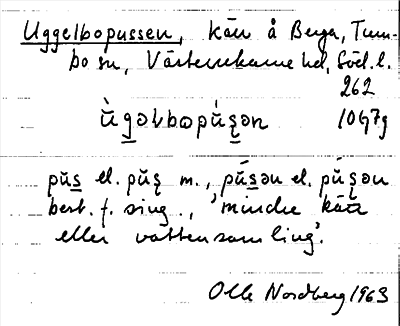 Uggelbopussen, kärr å Berga, Tum-
bo sn, Västerrekarne hd, Södl.l.
262
ùgəlbopúşən 10G7g
pŭs el. pŭş m., pŭsən el. pŭşən
best. f. sing., 'mindre kärr
eller vattensamling'.
Olle Nordberg 1963